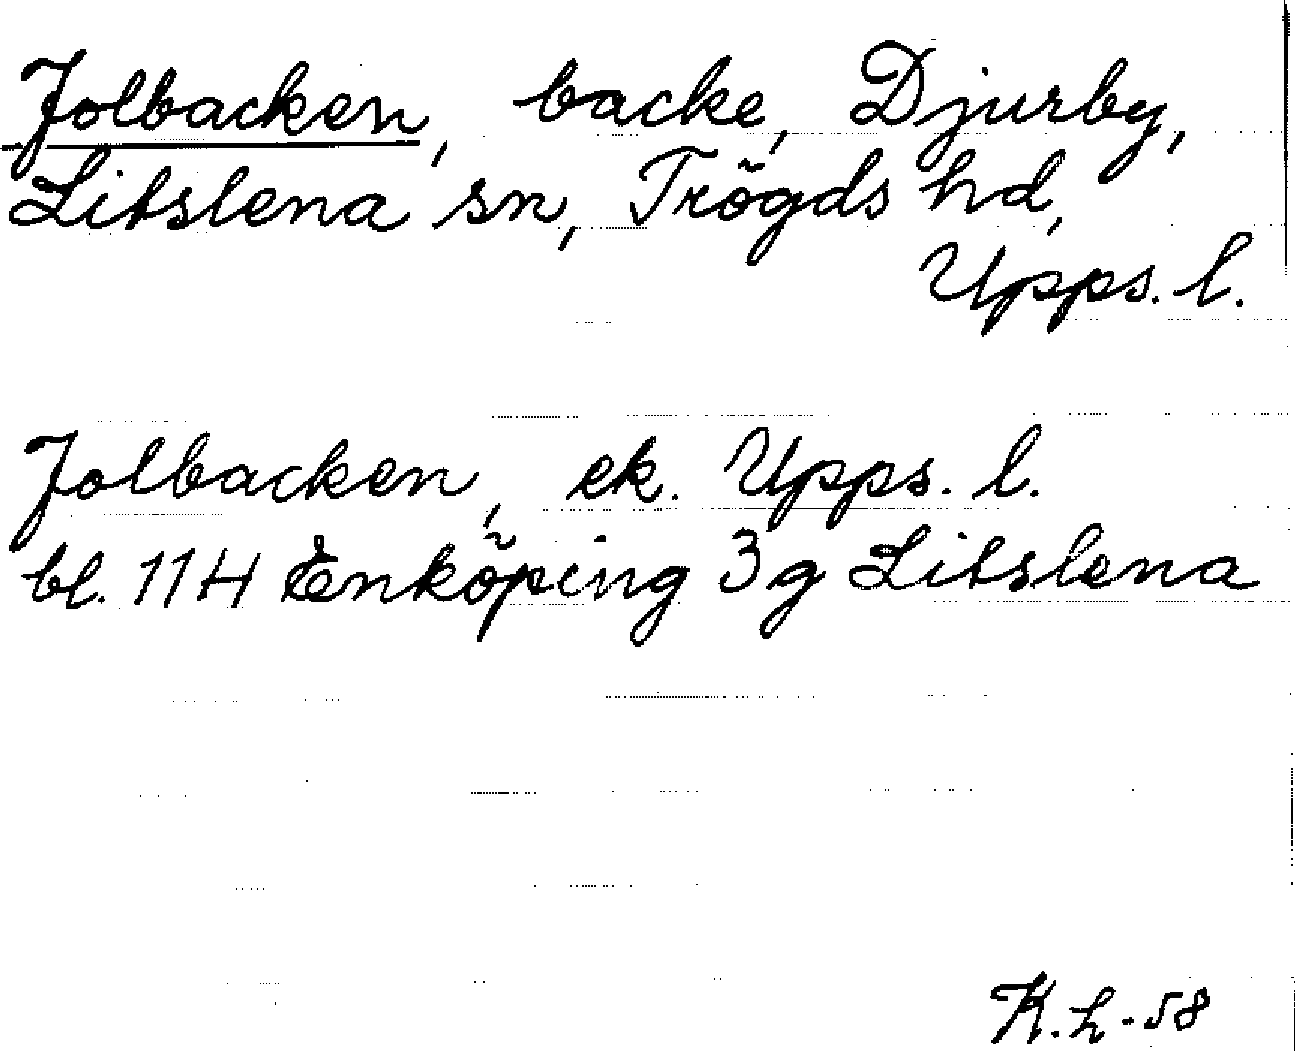 Jolbacken, backe, Djurby,
Litslena sn, Trögds hd,
Upps. l.
Jolbacken, ek. Upps. l.
bl. 11H Enköping 3g Litslena
K.h-58